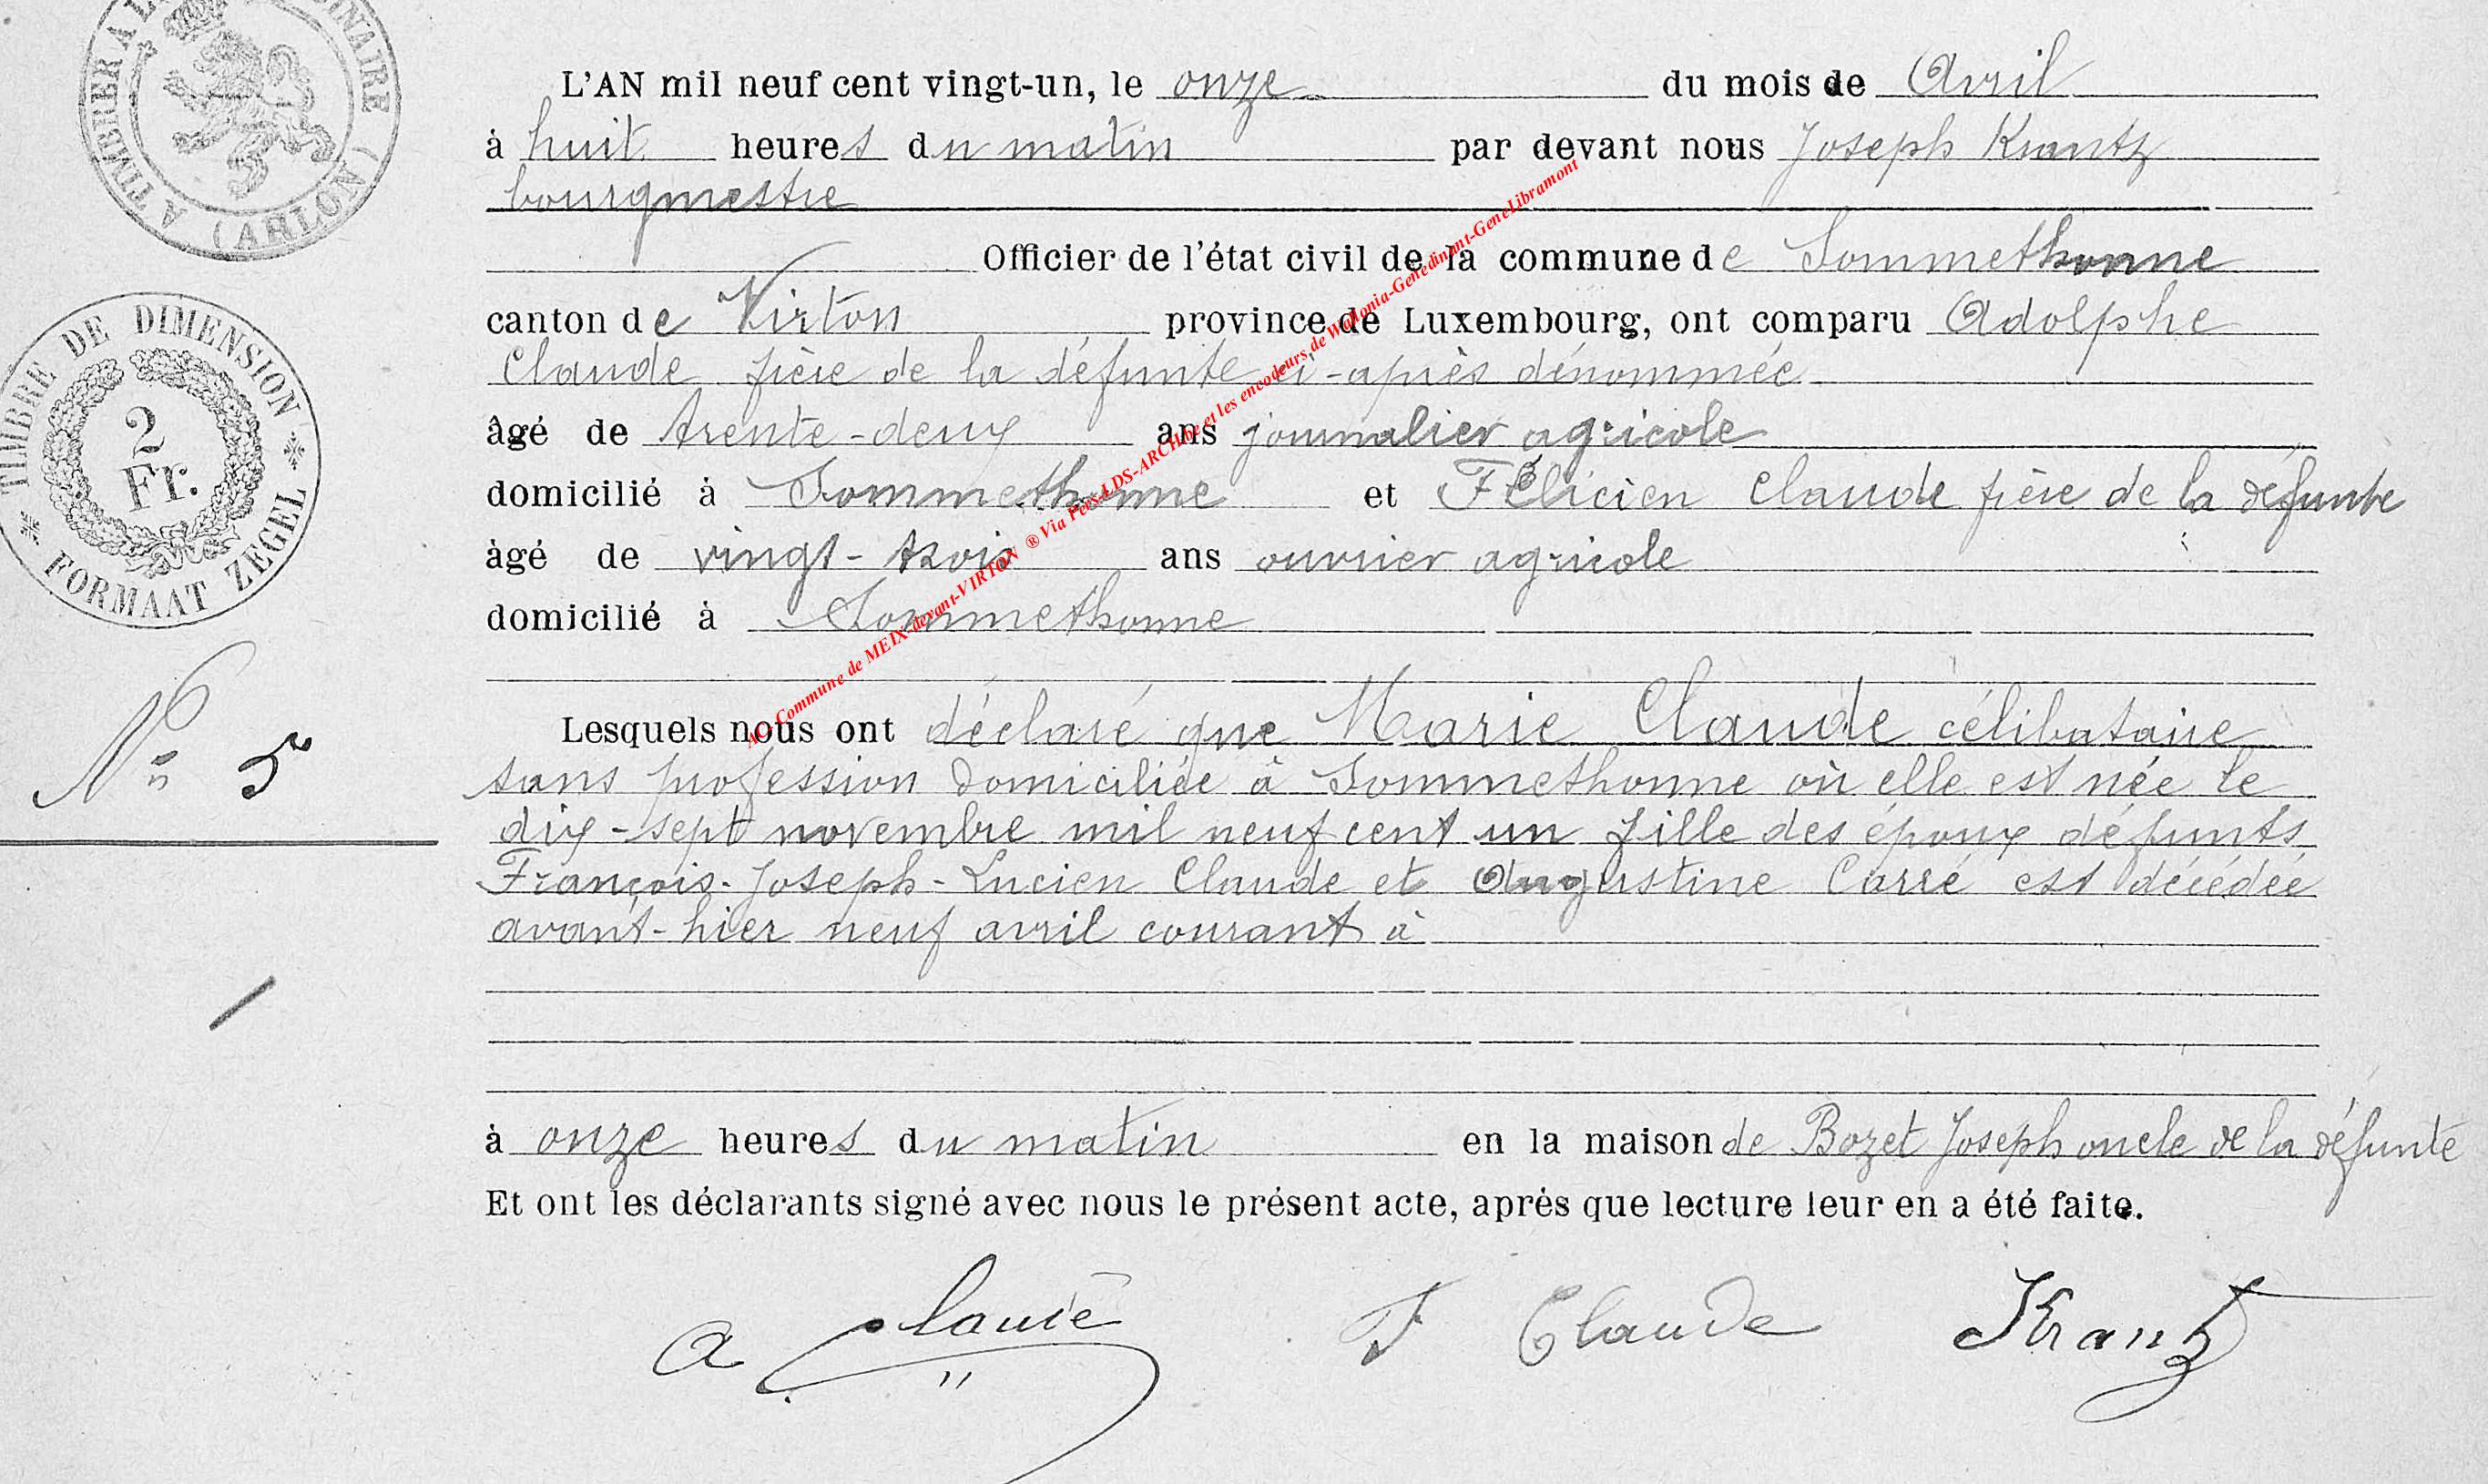 A TIMBRER A L'EXTRAORDINAIRE (ARLON)
L'AN mil neuf cent vingt-un, le onze du mois de Avril
à huit heures du matin par devant nous Joseph Krantz
bourgmestre
Officier de l'état civil de la commune de Sommethonne
canton de Virton province de Luxembourg, ont comparu Adolphe
Claude frère de la défunte ci-après dénommée
âgé de trente-deux ans journalier agricole
domicilié à Sommethonne et Félicien Claude frère de la défunte
âgé de vingt-trois ans ouvrier agricole
domicilié à Sommethonne
TIMBRE DE DIMENSION
2
Fr.
FORMAAT ZEGEL
AC. Commune de MEIX-devant-VIRTON ® Via Pers-LDS-ARCH.be et les encodeurs de Wallonia-Genedinant-GeneLibramont
Nº 5
Lesquels nous ont déclaré que Marie Claude célibataire
sans profession domiciliée à Sommethonne où elle est née le
dix-sept novembre mil neuf cent un fille des époux défunts
François-Joseph-Lucien Claude et Augustine Carré est décédée
avant-hier neuf avril courant à
à onze heures du matin en la maison de Bozet Joseph oncle de la défunte
Et ont les déclarants signé avec nous le présent acte, après que lecture leur en a été faite.
A Claude F Claude Krantz